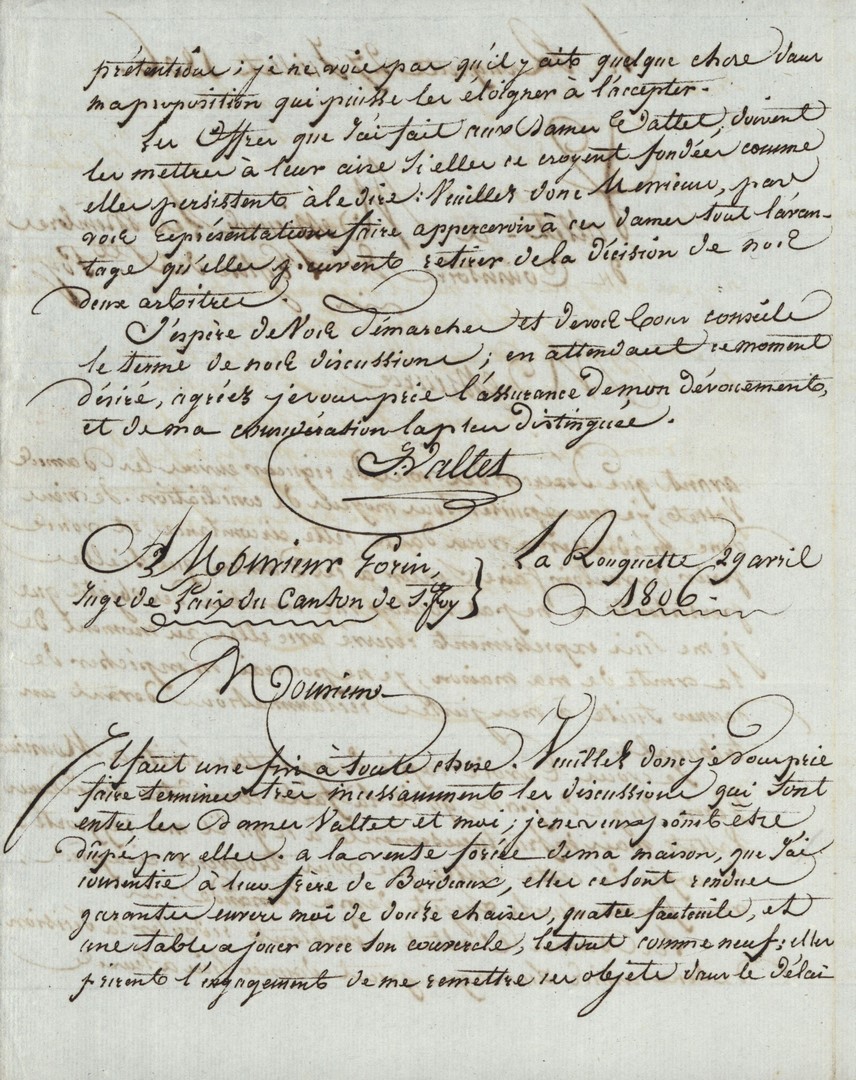 prétentions; je ne vois pas qu'il y ait quelque chose dans
ma proposition qui puisse les éloigner à l'accepter.
Les offres que j'ai fait aux Dames Valtet, doivent
les mettres à leur aise si elles ce croyent fondées comme
elles persistent à le dire: Veuillez donc Messieurs, par
vos représentations faire appercevoir à ces dames tout l'avan-
tage qu'elles peuvent retirer de la décision de nos
deux arbitres.
J'espère de vos démarches et de vos bons conseils
le terme de nos discussions; en attendant ce moment
désiré, agréez je vous prie l'assurance de mon dévouement,
et de ma considération la plus distinguée.
Valtet
A Monsieur Gorin, } La Rouquette 29 avril
Juge de Paix du Canton de S.te foy } 1806
Monsieur
Il faut une fin à toute chose. Veuillez donc je vous prie
faire terminer très incessamment les discussions qui sont
entre les Dames Valtet et moi; je ne veux point être
dupé par elles. a la vente forcée de ma maison, que j'ai
consentie à leur frère de Bordeaux, elles ce sont rendues
garantes envers moi de douze chaises, quatre fauteuils, et
une table a jouer avec son couvercle, le tout comme neuf: elles
prirent l'engagement de me remettre ces objets dans le délai